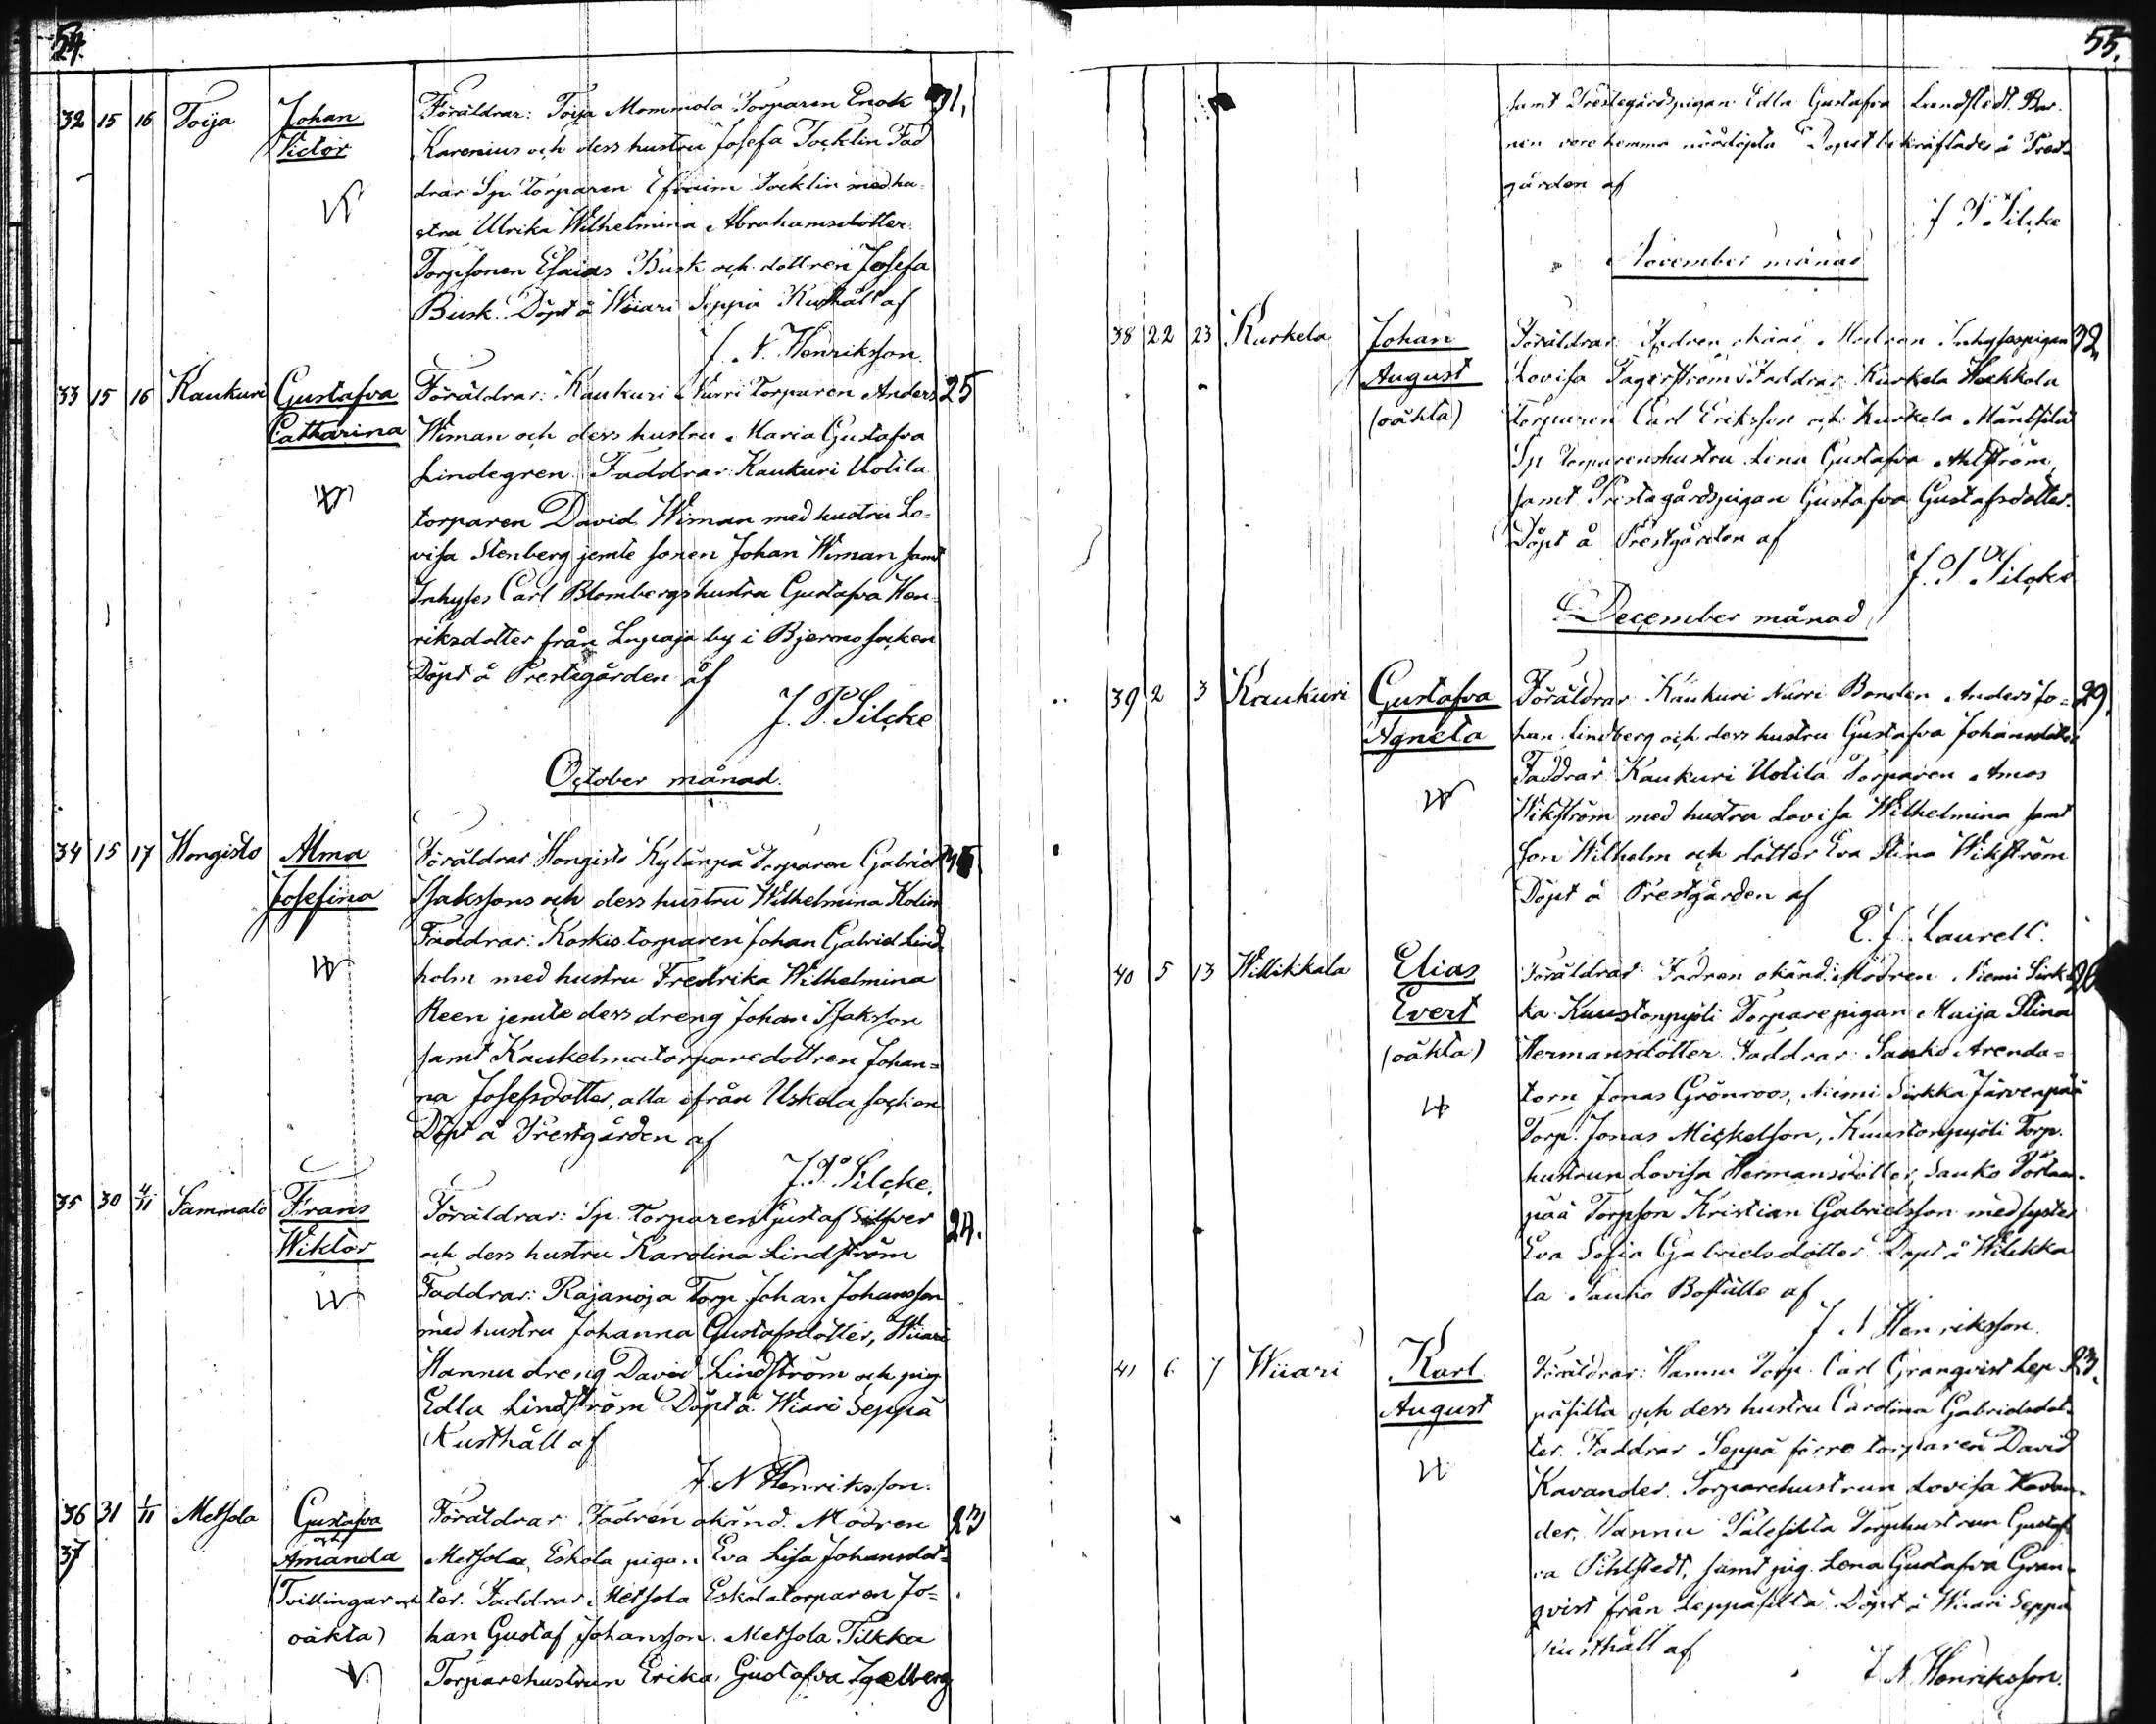 54.
32 15 16 Toija Johan Föräldrar: Toija Mommola Torparen Enok 31,
Victor Karenius och dess hustru Josefa Tocklin Fad
drar Sp. torparen Efraim Tocklin med hu-
stru Ulrika Wilhelmina Abrahamsdotter.
Torpsonen Esaias Busk och dottren Josefa
Busk. Döpt å Wiiari Seppä Rusthåll af
J. N. Henriksson.
33 15 16 Kaukuri Gustafva Föräldrar: Kaukuri Nurri Torparen Anders 25
Catharina Wiman och dess hustru Maria Gustafva
Lindegren. Faddrar: Kaukuri Uotila
torparen David Wiman med hustru Lo-
visa Stenberg jemte sonen Johan Wiman samt
Inhyses Carl Blombergs hustru Gustafva Hen-
riksdotter från Lupaja by i Bjerno socken
Döpt å Prestegården af
J. P. Silcke
October månad.
34 15 17 Hongisto Alma Föräldrar Hongisto Kylänpä Torparen Gabriel
Josefina Isakssons och dess hustru Wilhelmina Kolin
Faddrar: Koskis torparen Johan Gabriel Lind-
holm med hustru Fredrika Wilhelmina
Reen jemte dess dreng Johan Isaksson
samt Kaukelmatorparedottren Johan-
na Josefsdotter, alla ifrån Uskela socken
Döpt å Prestgården af
J. P. Silcke.
35 30 4/11 Sammalo Frans Föräldrar: Sp. Torparen Gustaf Silfver 24.
Wiktor och dess hustru Karolina Lindström
Faddrar: Rajanoja Torp. Johan Johansson
med hustru Johanna Gustafsdotter, Wiiari
Hannu dreng David Lindström och pig.
Edla Lindström Döpt å Wiiari Seppä
Rusthåll af
J. N. Henriksson.
36 31 1/11 Metsola Gustafva Föräldrar: Fadren okänd. Modren 23
37 och Amanda Metsola Eskola pigan Eva Lisa Johansdot-
(Tvillingar och ter. Faddrar: Metsola Eskolatorparen Jo-
oäkta) han Gustaf Johansson. Metsola Tilkka
Torparehustrun Erika Gustafva
55.
samt Prestegårdspigan Edla Gustafva Lundstedt. Bar-
nen voro hemma nöddöpta Dopet bekräftades å Prest-
gården af
J P Silcke
November månad
38 22 23 Kurkela Johan Föräldrar: Fadren okänd, Modren Inhysespigan 32
August Lovisa Fagerström. Faddrar: Kurkela Heikkola
(oäkta) Torparen Carl Eriksson och Kurkela Mäntsilä
Sp. Torparenshustru Lena Gustafva Ahlström,
samt Prestagårdspigan Gustafva Gustafsdotter.
Döpt å Prestgården af
J. P. Silcke
December månad
39 2 3 Kaukuri Gustafva Föräldrar Kaukuri Nurri Bonden Anders Jo- 29.
Agneta han Lindberg och dess hustru Gustafva Johansdotter
Faddrar Kaukuri Uotila Torparen Amos
Wikström med hustru Lovisa Wilhelmina samt
son Wilhelm och dotter Eva Stina Wikström
Döpt å Prestgården af
E. J. Laurell.
40 5 13 Willikkala Elias Föräldrar: Fadren okänd: Modren Niemi Sirk- 26
Evert ka Kuustonpyöli Torparepigan Maija Stina
(oäkta) Hermansdotter. Faddrar: Sauko Arenda-
torn Jonas Grönroos, Niemi Sirkka Järvenpää
Torp. Jonas Mickelson, Kuustonpyöli Torp.
hustrun Lovisa Hermansdotter, Sauko
pää Torpson Kristian Gabrielsson med syster
Eva Sofia Gabrielsdotter Döpt å Wilikka
la Sauko Boställe af
J N Henriksson.
41 6 7 Wiiari Karl Föräldrar: Hannu Torp. Carl Granqvist Lep 23.
August päsilta och dess hustru Carolina Gabrielsdot-
ter. Faddrar Seppä förre torparen David
Kavander. Torparehustrun Lovisa Kavan-
der, Hannu Torphustrun Gustaf-
va Pihlstedt, samt pig. Lena Gustafva Gran-
qvist från Leppäsilta Döpt å Wiiari Seppä
Rusthåll af
J. N. Henriksson.